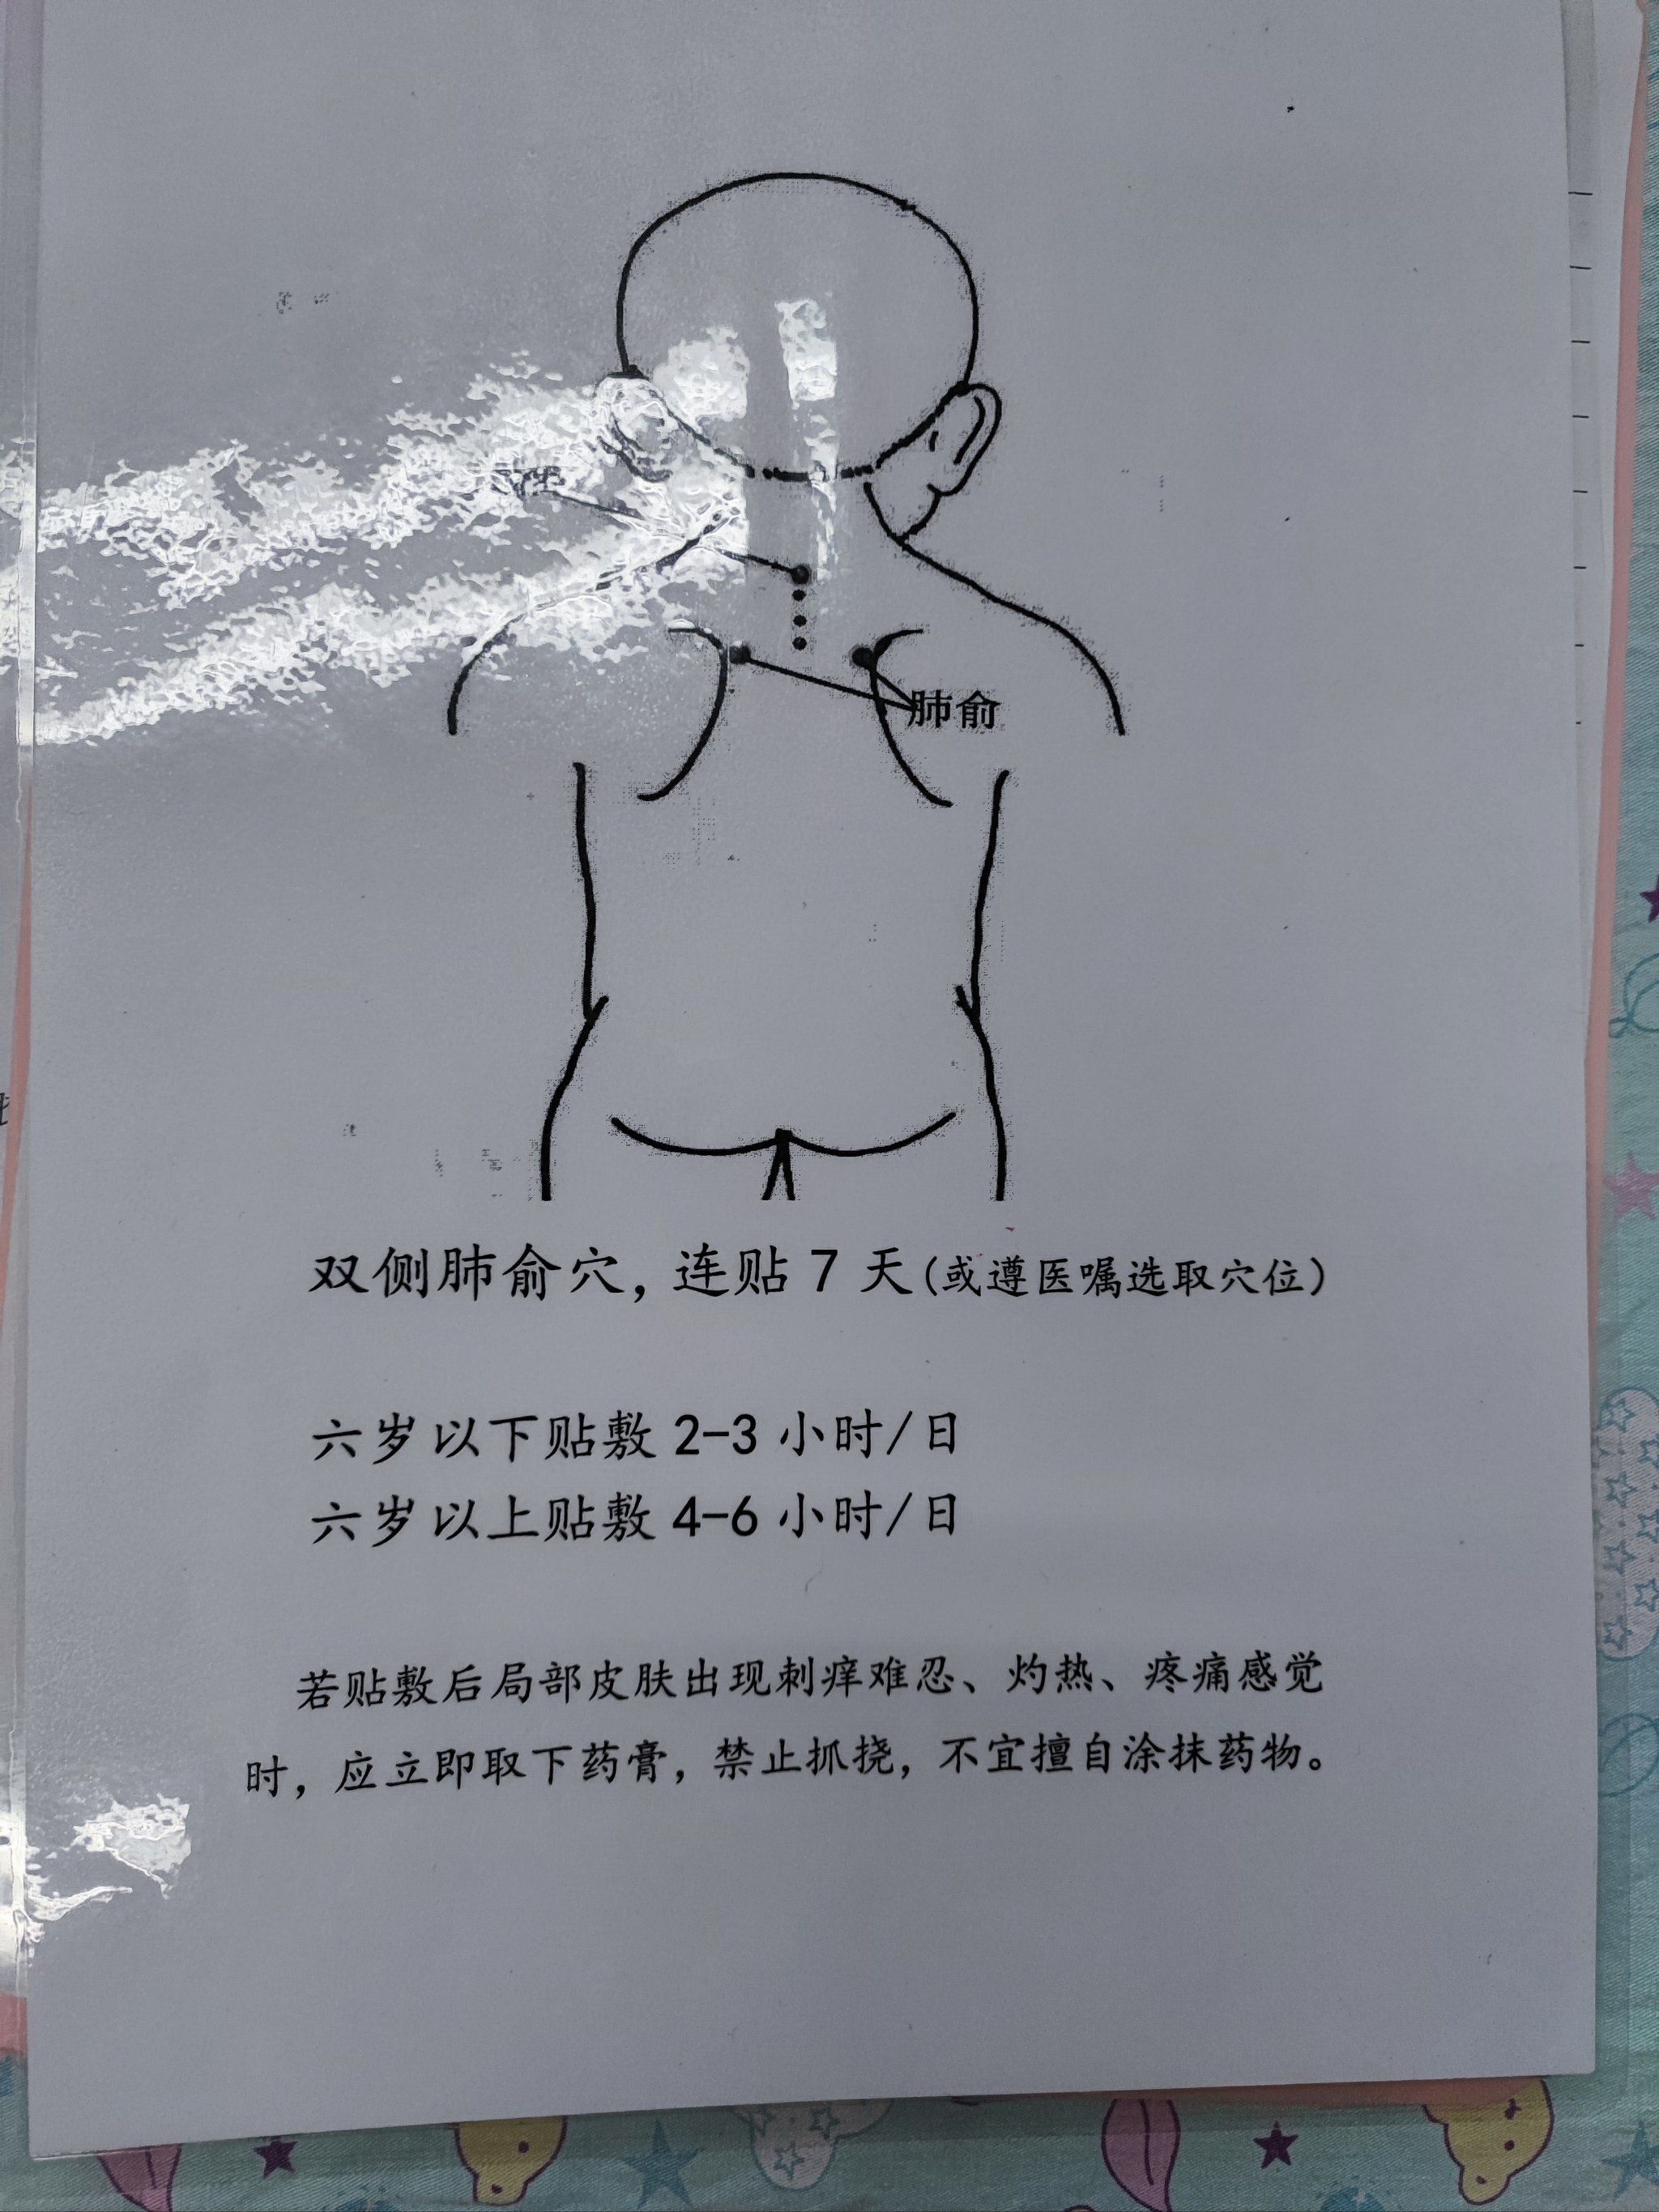 肺俞
双侧肺俞穴，连贴 7 天(或遵医嘱选取穴位)
六岁以下贴敷 2-3 小时/日
六岁以上贴敷 4-6 小时/日
若贴敷后局部皮肤出现刺痒难忍、灼热、疼痛感觉
时，应立即取下药膏，禁止抓挠，不宜擅自涂抹药物。